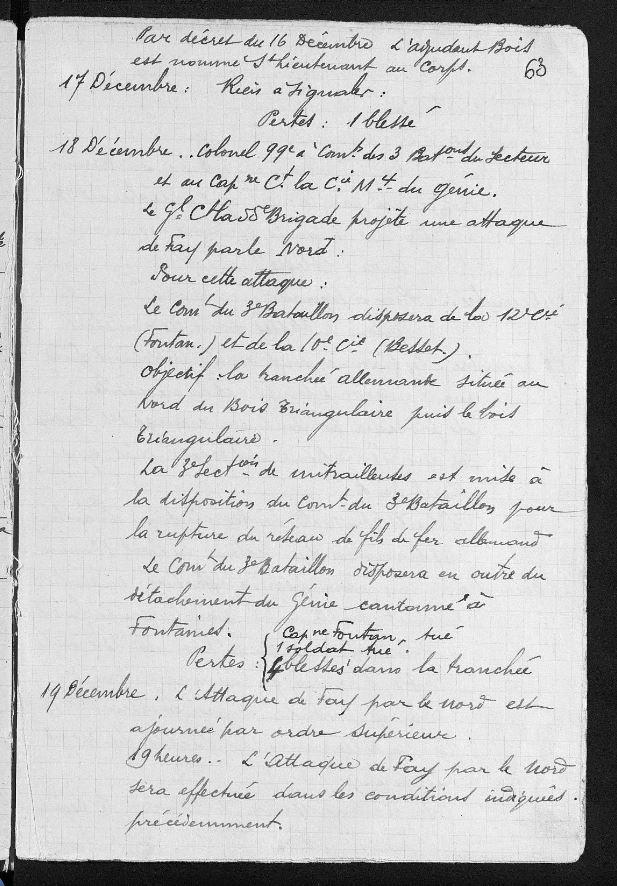 Par décret du 16 Décembre L'adjudant Bois
est nommé St Lieutenant au Corps.
63
17 Décembre: Rien à signaler:
Pertes: 1 blessé
18 Décembre.. Colonel 99e à Comts des 3 Batons du Secteur
et au Capne Ct la Cie M4 du génie.
Le Gl Ct la 55e Brigade projète une attaque
de Fay par le Nord:
Pour cette attaque:
Le Comt du 3e Bataillon disposera de la 12e Cie
(Fontan.) et de la 10e Cie (Besset.).
Objectif: la tranchée allemande située au
Nord du Bois Triangulaire puis le bois
Triangulaire.
La 3e Section de mitrailleuses est mise à
la disposition du Comt du 3e Bataillon pour
la rupture du réseau de fils de fer allemand
Le Comt du 3e Bataillon disposera en outre du
détachement du Génie cantonné à
Fontaines.
Capne Fontan, tué
1 soldat tué.
Pertes: 4 blessés dans la tranchée
19 Décembre. L'Attaque de Fay par le nord est
ajournée par ordre supérieur.
19 heures.. L'Attaque de Fay par le Nord
sera effectuée dans les conditions indiquées
précédemment.